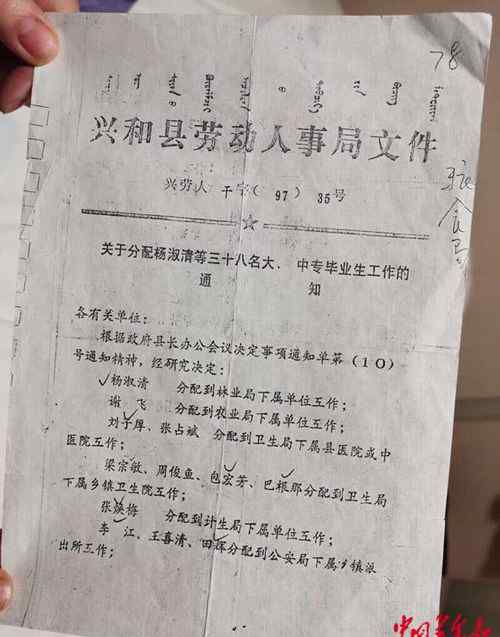 78
兴和县劳动人事局文件
兴劳人干字( 97 ) 35号
关于分配杨淑清等三十八名大、中专毕业生工作的
通 知
各有关单位:
根据政府县长办公会议决定事项通知单第(10)
号通知精神,经研究决定:
杨淑清 分配到林业局下属单位工作;
谢 飞 分配到农业局下属单位工作;
刘于厚、张占斌 分配到卫生局下属县医院或中
医院工作;
梁宗敏、周俊鱼、包宏芳、巴根那分配到卫生局
下属乡镇卫生院工作;
张焕梅 分配到计生局下属单位工作;
李 江、王喜清、田辉分配到公安局下属乡镇派
出所工作;
中国青年报